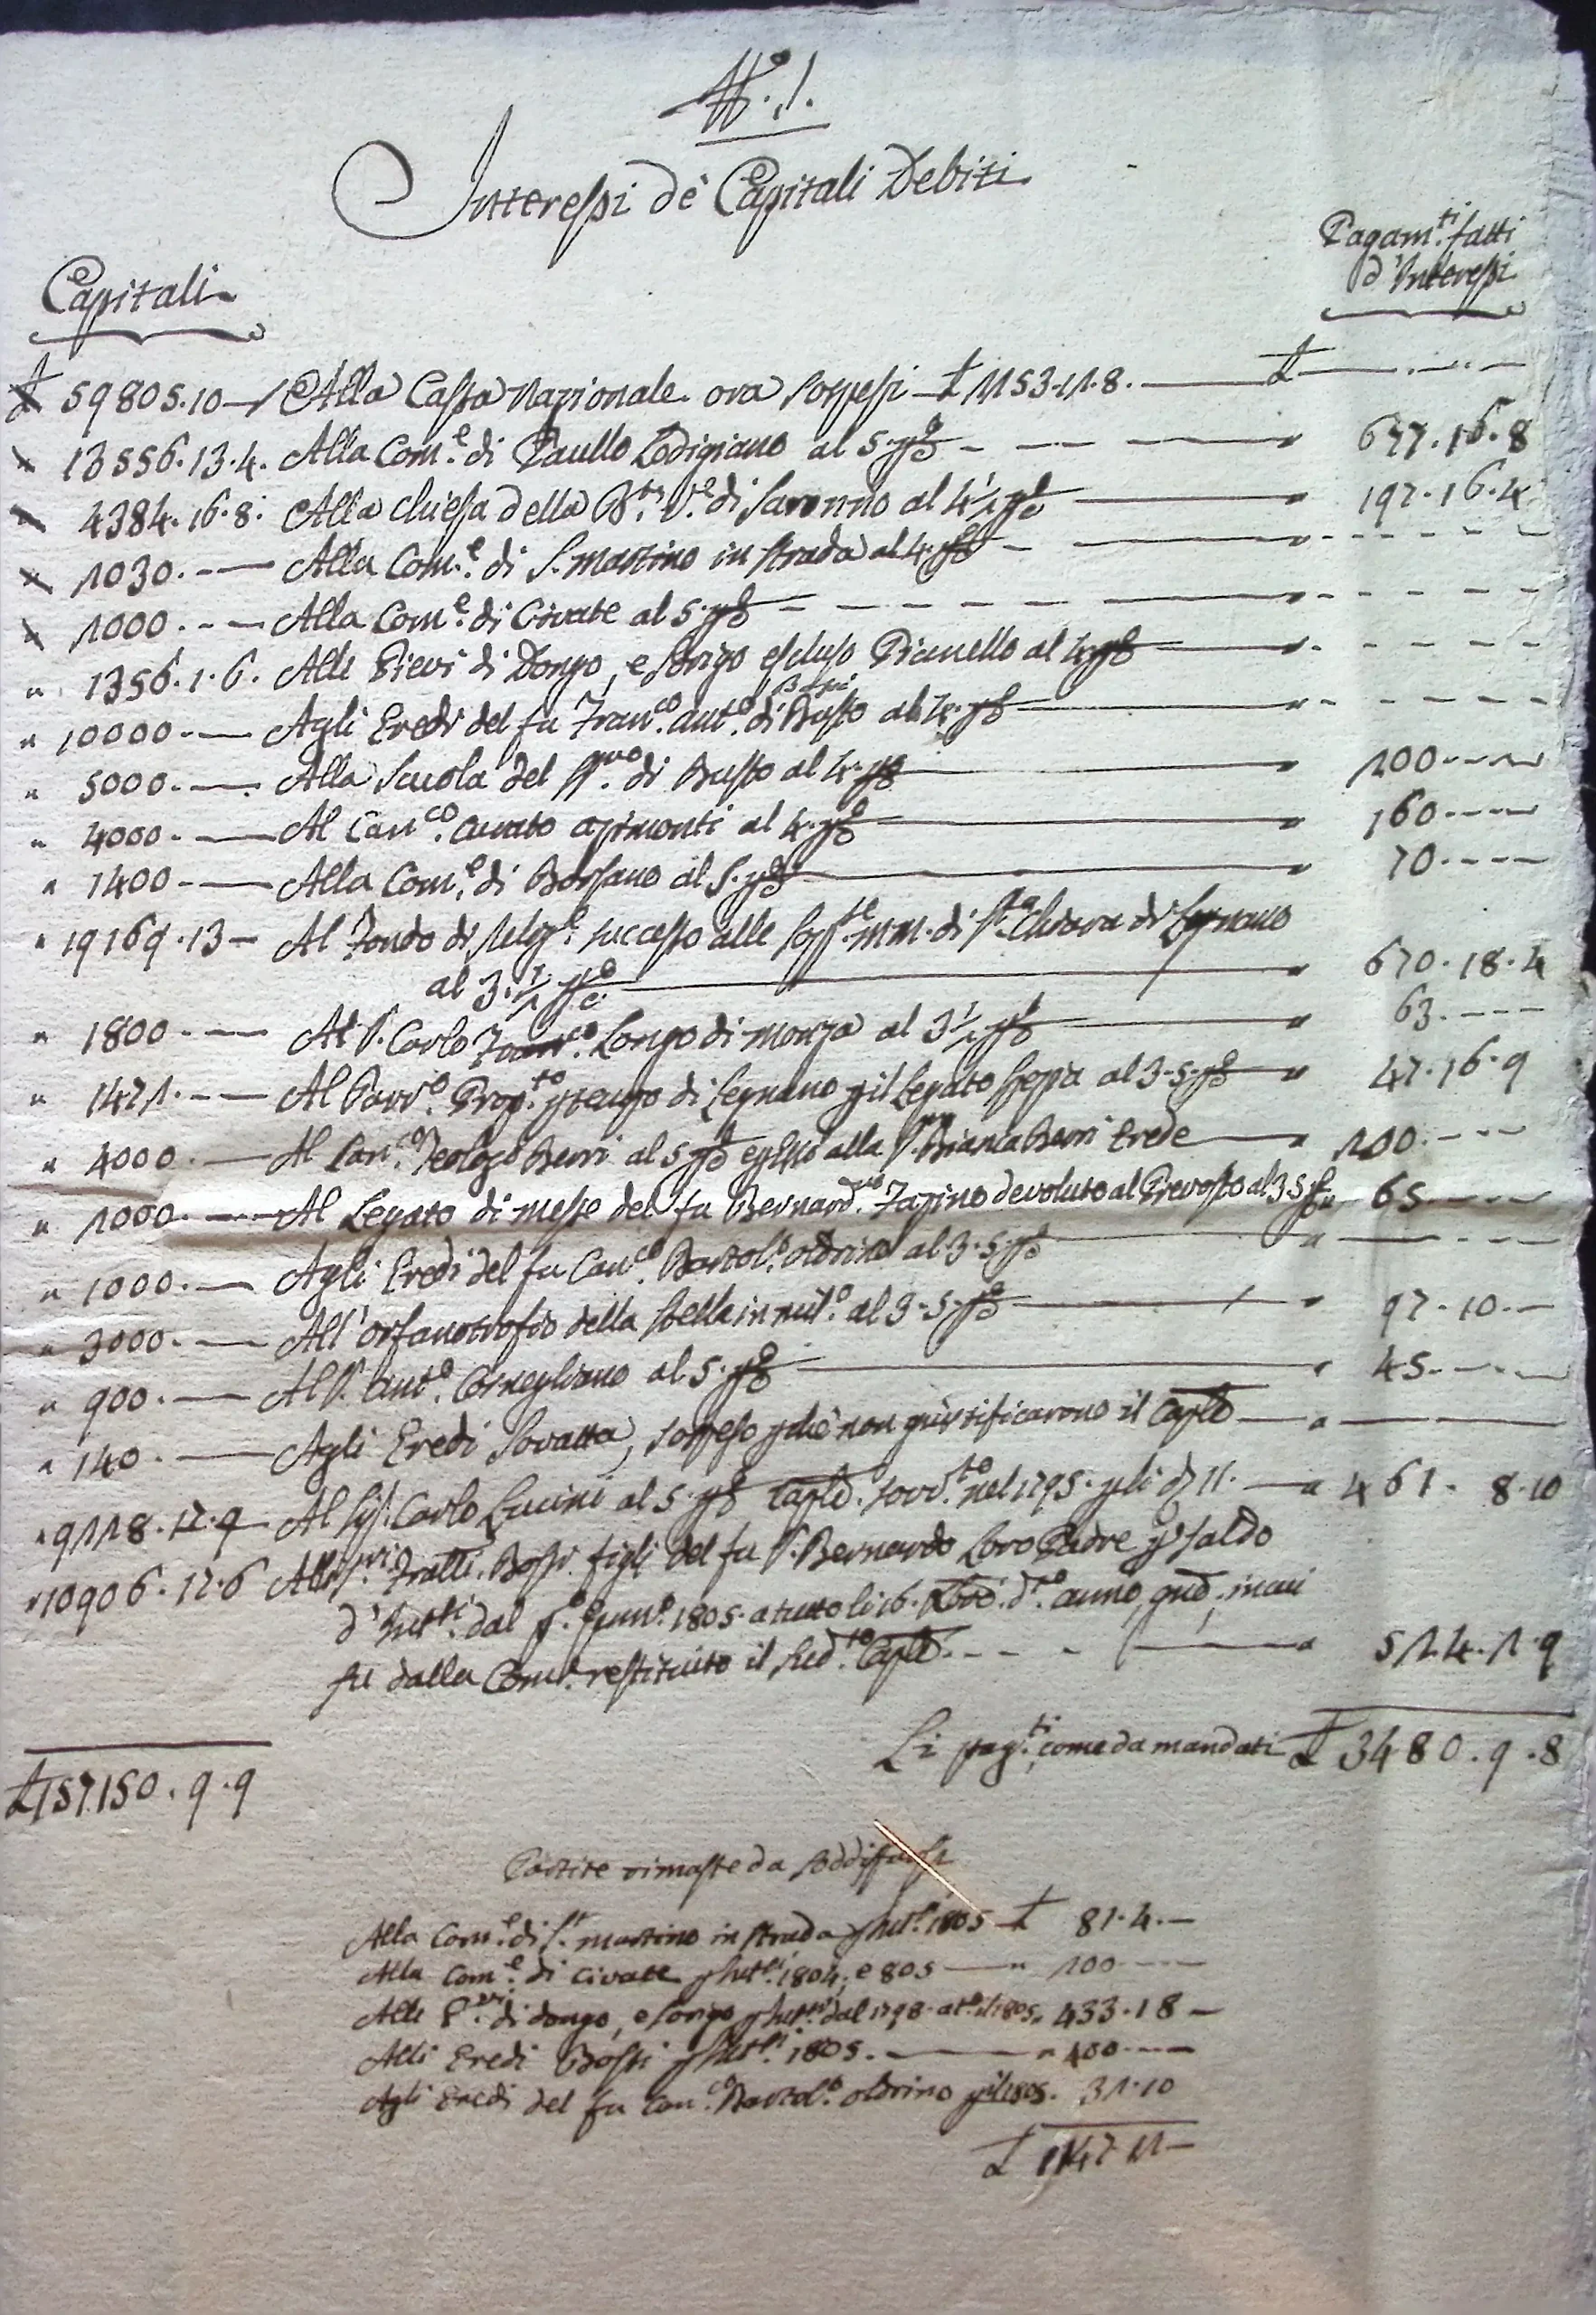 N.º 1.
Interessi dè Capitali Debiti
Capitali
Pagam.ti fatti
d'Interessi
£ 59805.10 — Alla Cassa Nazionale ora sospesi £ 1153.11.8. — £ — . — . —
" 13556.13.4. Alla Com.e di Paullo Lodigiano al 5. p% — " 677.16.8
" 4384.16.8. Alla chiesa della B.ta V.e di Saronno al 4½ p% — " 197.16.4
" 1030. — Alla Com.e di S. Martino in strada al 4. p% — "
" 1000. — Alla Com.e di Civate al 5. p% — "
" 1356.1.6. Alle Pievi di Dongo, e Sorigo escluso Pianello al 4. p% — "
" 10000. — Agli Eredi del fu Fran.co Ant.o Bossi di Busto al 4. p% — "
" 5000. — Alla Scuola del S.mo di Busto al 4. p% — 200. —
" 4000. — Al Can.co Curato Azimonti al 4. p% — " 160. —
" 1400. — Alla Com.e di Borsano al 5. p% — " 70. —
" 19169.13 — Al Fondo di Relig.e successo alle Sopp.te MM. di S.ta Chiara di Legnano
al 3.½ p% — " 670.18.4
" 1800. — Al S. Carlo Fran.co Longo di Monza al 3½ p% — " 63. —
" 1471. — Al Parr.o Prop.to pro tempo di Legnano p il Legato al 3.5. p% " 47.16.9
" 4000. — Al Can.co Teologo Berri al 5 p% e p esso alla S.ra Bianca Berri Erede — " 200. —
" 1000. — Al Legato di messe del fu Bernard.no Tapino devoluto al Prevosto al 3.5 p% " 65. —
" 1000. — Agli Eredi del fu Can.co Bartol.o Oldrino al 3.5. p% — " —
" 3000. — All'orfanotrofio della Stella in Mil.o al 3.5. p% — " 97.10. —
" 900. — Al S. Ant.o Cornegliano al 5. p% — " 45. —
" 140. — Agli Eredi Sovatta, sospeso p chè non giustificarono il Caple — " —
" 9118.12.9 Al Sig. Carlo Lucini al 5. p% Caple. sovv.to nel 1795. p li — " 461. 8.10
" 10906.12.6 Alli S.ri Fratli. Bossi figli del fu S. Bernardo Loro Padre p saldo
d'Intssi. dal p.o Genn.o 1805. a tutto li 16. d.to anno,
fu dalla Com.e restituito il sud.to Caple. — " 514.1.9
Li pag.ti come da mandati £ 3480.9.8
£ 157150.9.9
Partite rimaste da soddisfarsi
Alla Com.e di S.t Martino in Strada p Intssi. 1805 — £ 81.4. —
Alla Com.e di Civate p Intssi. 1804, e 805 — " 100. —
Alle P.vi di Dongo, e Sorigo p Intssi. dal 1798. a t.o il 1805. 433.18 —
Alli Eredi Bossi p Intssi. 1805. — " 400. —
Agli Eredi del fu Can.co Bartol.o Oldrino p il 1805. 31.10
£ 1147.11 —